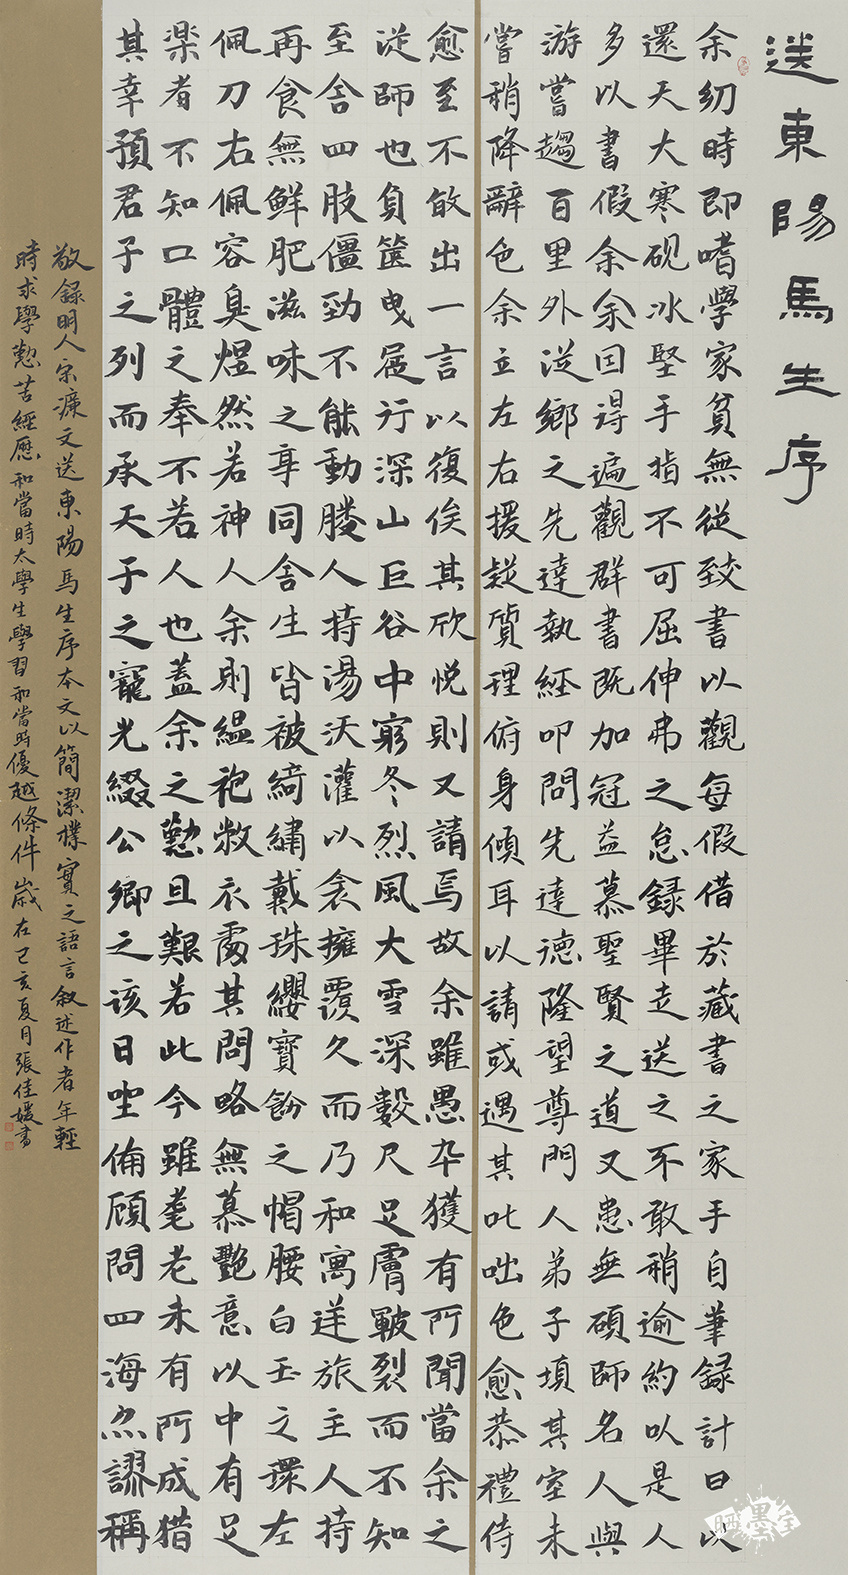 送東陽馬生序
余幼時即嗜學家貧無從致書以觀每假借於藏書之家手自筆錄計日以
還天大寒硯冰堅手指不可屈伸弗之怠錄畢走送之不敢稍逾約以是人
多以書假余余因得遍觀群書既加冠益慕聖賢之道又患無碩師名人與
游嘗趨百里外從鄉之先達執經叩問先達德隆望尊門人弟子填其室未
嘗稍降辭色余立左右援疑質理俯身傾耳以請或遇其叱咄色愈恭禮侍
愈至不敢出一言以復俟其欣悅則又請焉故余雖愚卒獲有所聞當余之
從師也負篋曳屣行深山巨谷中窮冬烈風大雪深數尺足膚皸裂而不知
至舍四肢僵勁不能動媵人持湯沃灌以衾擁覆久而乃和寓逆旅主人持
再食無鮮肥滋味之享同舍生皆被綺繡戴珠纓寶飾之帽腰白玉之環左
佩刀右佩容臭煜然若神人余則縕袍敝衣處其問略無慕艷意以中有足
樂者不知口體之奉不若人也蓋余之懃且艱若此今雖耄老未有所成猶
其幸預君子之列而承天子之寵光綴公卿之該日坐備顧問四海亦謬稱
敬錄明人宋濂文送東陽馬生序本文以簡潔樸實之語言敘述作者年輕
時求學懃苦經歷和當時太學生學習和當時優越條件歲在己亥夏月張佳媛書
墨